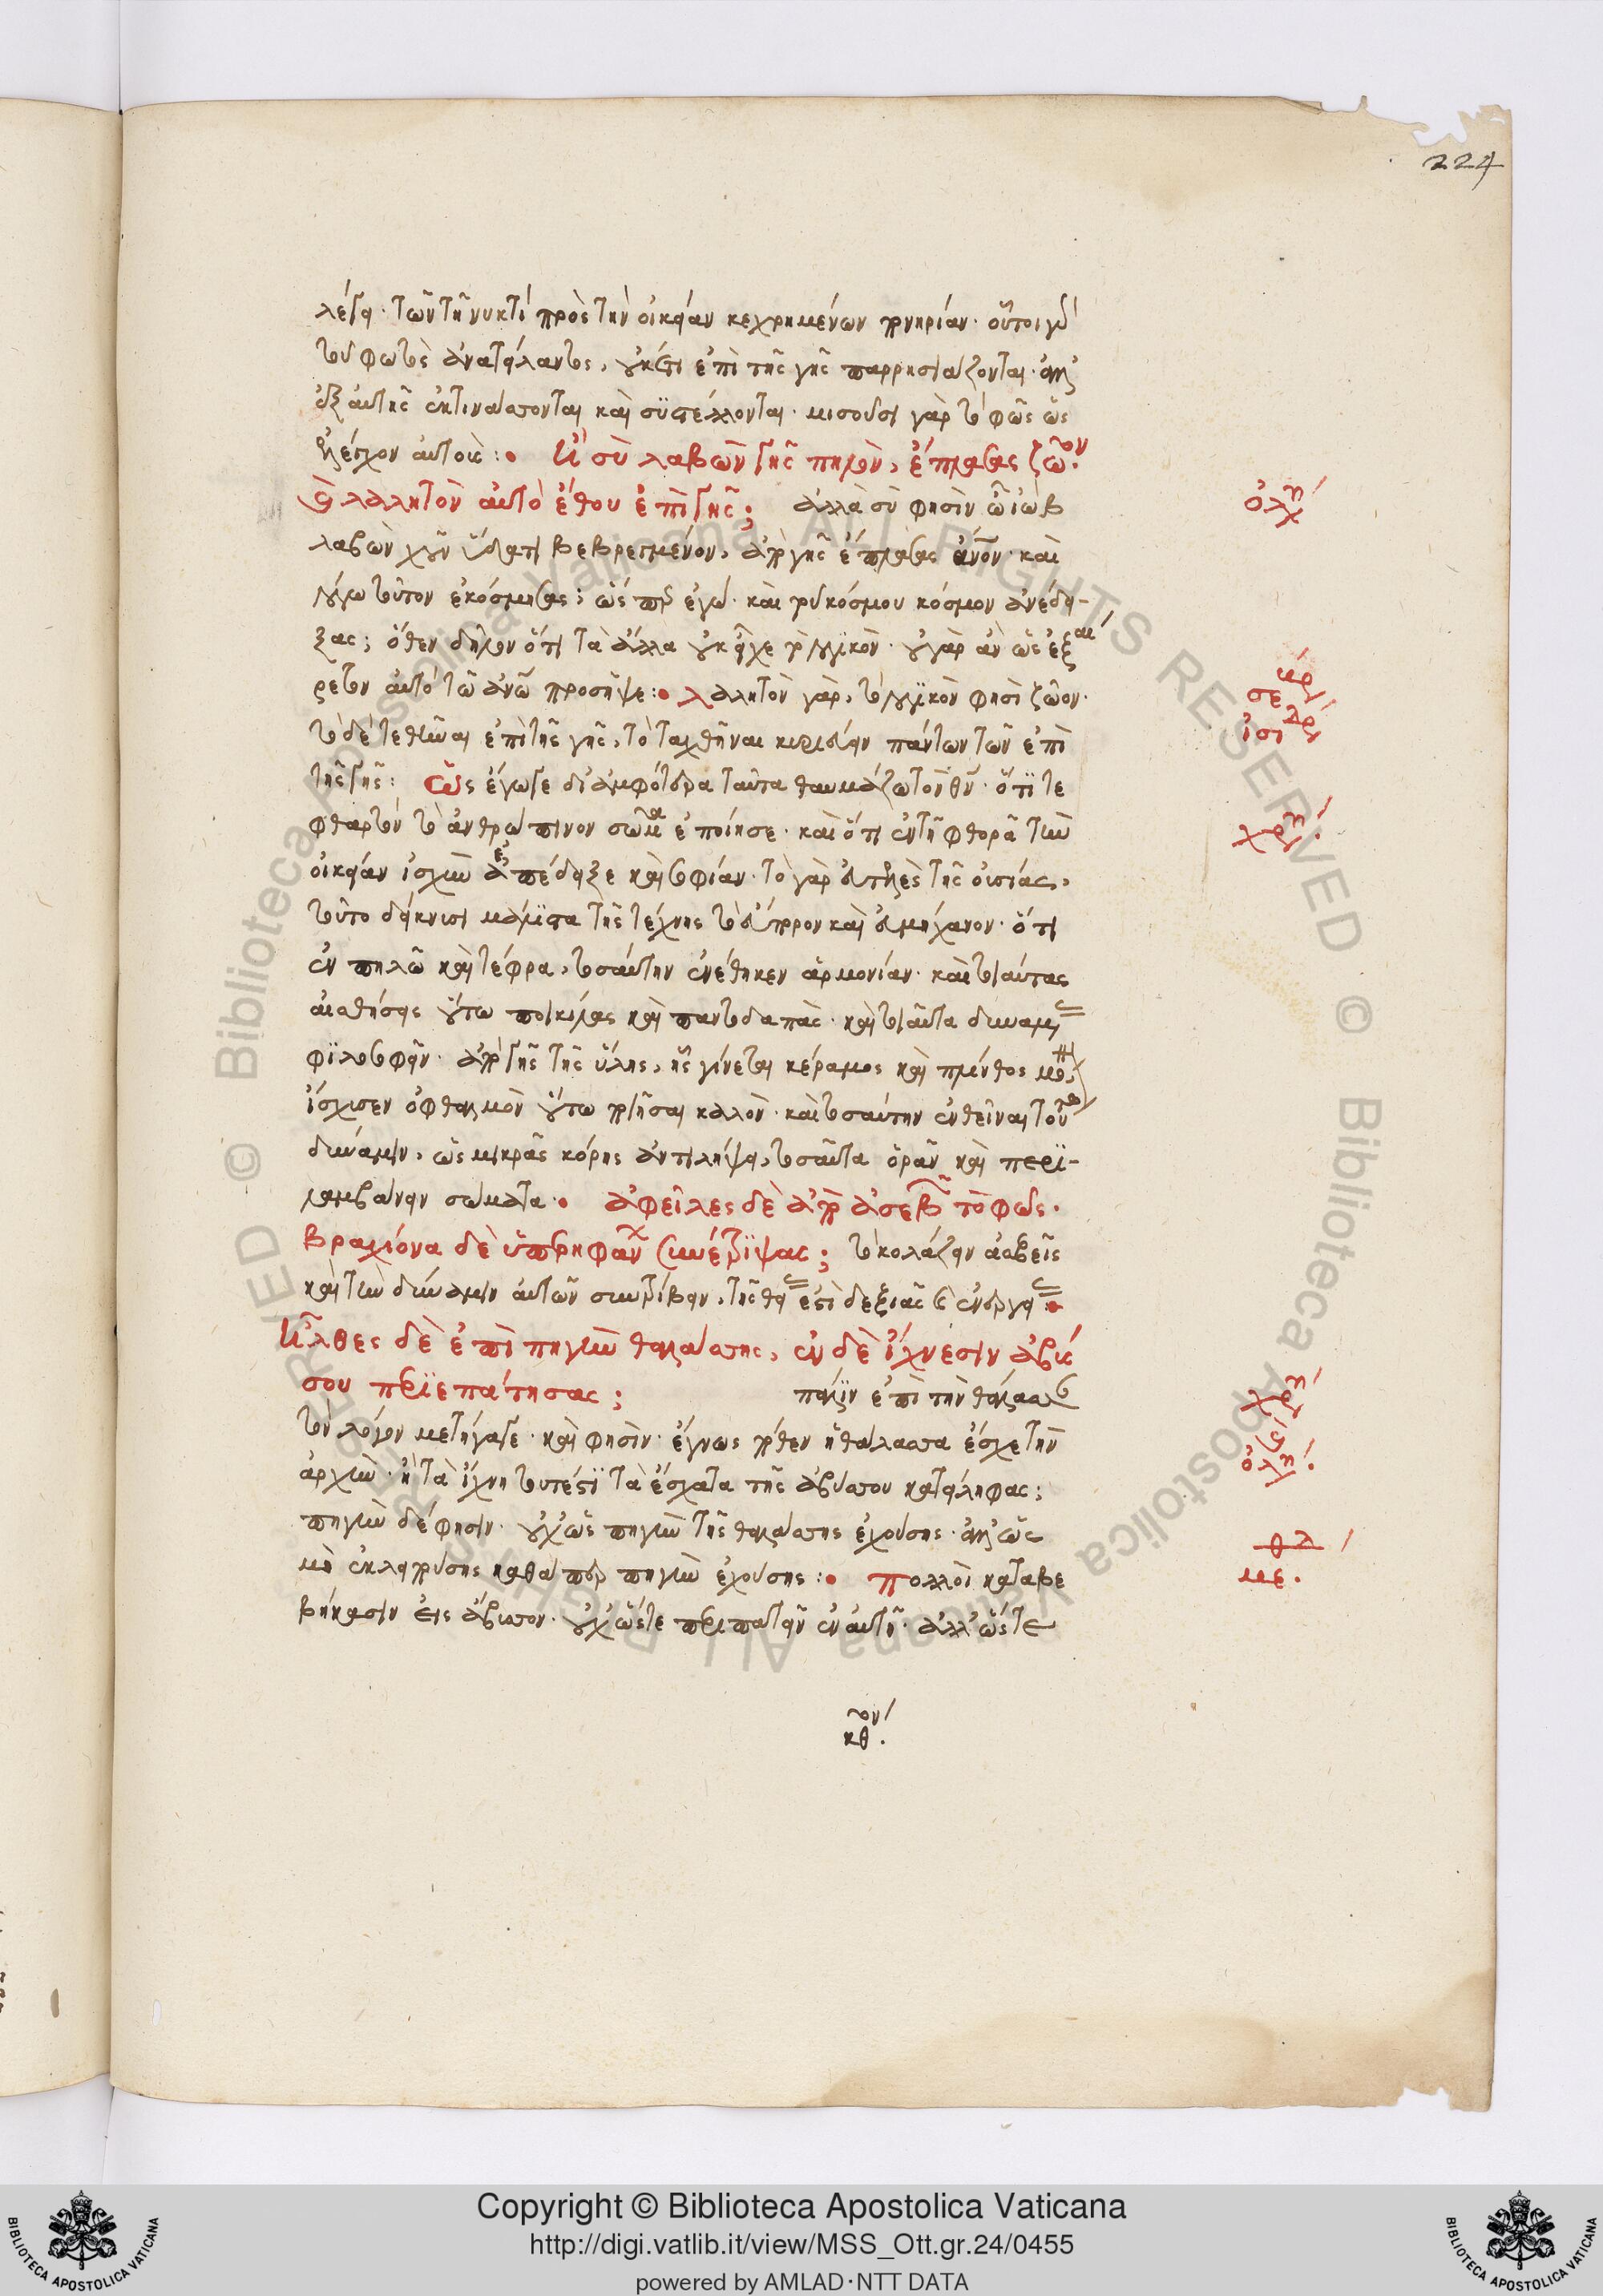 224
λέγει· τῶν τῆ νυκτὶ πρὸς τὴν οἰκείαν κεχρημένων πονηρίαν· οὗτοι γὰρ
τοῦ φωτὸς ἀνατείλαντος, οὐκέτι ἐπὶ τῆς γῆς παρρησιάζονται· ἀλλ'
ἐξ αὐτῆς ἐκτινάσσονται καὶ συστέλλονται· μισοῦσι γὰρ τὸ φῶς ὡς
ἐλέγχον αὐτούς: Ἢ σὺ λαβὼν γῆς πηλὸν, ἔπλασας ζῶον·
καὶ λαλητὸν αὐτὸ ἔθου ἐπὶ γῆς; ἀλλὰ σύ φησὶν ὦ ἰὼβ
λαβὼν χοῦν ὕδατι βεβρεγμένον, ἀπὸ γῆς ἔπλασας ἄνον· καὶ
λόγω τοῦτον ἐκόσμησας; ὥσπερ ἐγώ· καὶ τοῦ κόσμου κόσμον ἀνέδει-
ξας; ὅθεν δῆλον ὅτι τὰ ἄλλα οὐκ εἶχε τὸ λογικὸν· οὐ γὰρ ἂν ὡς ἐξαί
ρετον αὐτὸ τῶ ἀνω προσῆψε: λαλητὸν γὰρ, τὸ λογικὸν φησὶ ζῶον·
τὸ δὲ τεθῆναι ἐπὶ τῆς γῆς, τὸ ταχθῆναι κυριεύειν πάντων τῶν ἐπὶ
τῆς γῆς: ὡς ἔγωγε δι' ἀμφότερα ταῦτα θαυμάζω τὸν θν· ὅτι τε
φθαρτὸν τὸ ἀνθρώπινον σῶμα ἐποίησε· καὶ ὅτι ἐν τῆ φθορᾶ τὴν
οἰκείαν ἰσχὺν ἐπέδειξε καὶ σοφίαν· τὸ γὰρ εὐτελὲς τῆς οὐσίας,
τοῦτο δείκνυσι μάλιστα τῆς τέχνης τὸ εὔπορον καὶ εὐμήχανον· ὅτι
ἐν πηλῶ καὶ τέφρα, τοσαύτην ἐνέθηκεν ἁρμονίαν· καὶ τοιαύτας
αἰσθήσεις οὕτω ποικίλας καὶ παντοδαπὰς· καὶ τοιαῦτα δυναμένας
φιλοσοφεῖν· ἀπὸ γῆς τῆς ὕλης, ἧς γίνεται κέραμος καὶ πλίνθος μόνον,
ἴσχυσεν ὀφθαλμὸν οὕτω ποιῆσαι καλὸν· καὶ τοσαύτην ἐνθεῖναι τούτω
δύναμιν, ὡς μικρᾶς κόρης ἀντιλήψει, τοσαῦτα ὁρᾶν καὶ περι-
λαμβάνειν σώματα· ἀφεῖλες δὲ ἀπὸ ἀσεβῶν τὸ φῶς·
βραχίονα δὲ ὑπερηφάνων συνέτριψας; τὸ κολάζειν ἀσεβεῖς
καὶ τὴν δύναμιν αὐτῶν συντρίβειν, τῆς θείας ἐστὶ δεξιᾶς καὶ ἐνεργείας
Ἦλθες δὲ ἐπὶ πηγὴν θαλάσσης, ἐν δὲ ἴχνεσιν ἀβύσ
σου περιεπάτησας; πάλιν ἐπὶ τὴν θάλασσαν
τὸν λόγον μετήγαγε· καὶ φησὶν· ἔγνως πόθεν ἡ θάλασσα ἔσχε τὴν
ἀρχὴν· ἢ τὰ ἴχνη τουτέστι τὰ ἔσχατα τῆς ἀβύσσου κατείληφας;
πηγὴν δέ φησιν· οὐχ' ὡς πηγὴν τῆς θαλάσσης ἐχούσης· ἀλλ' ὡς
μὴ ἐκλειπούσης καθάπερ πηγὴν ἐχούσης: πολλοὶ καταβε
βήκασιν εἰς ἄβυσσον· οὐχ' ὥστε περιπατεῖν ἐν αὐτῆ· ἀλλ' ὥστε
κθον